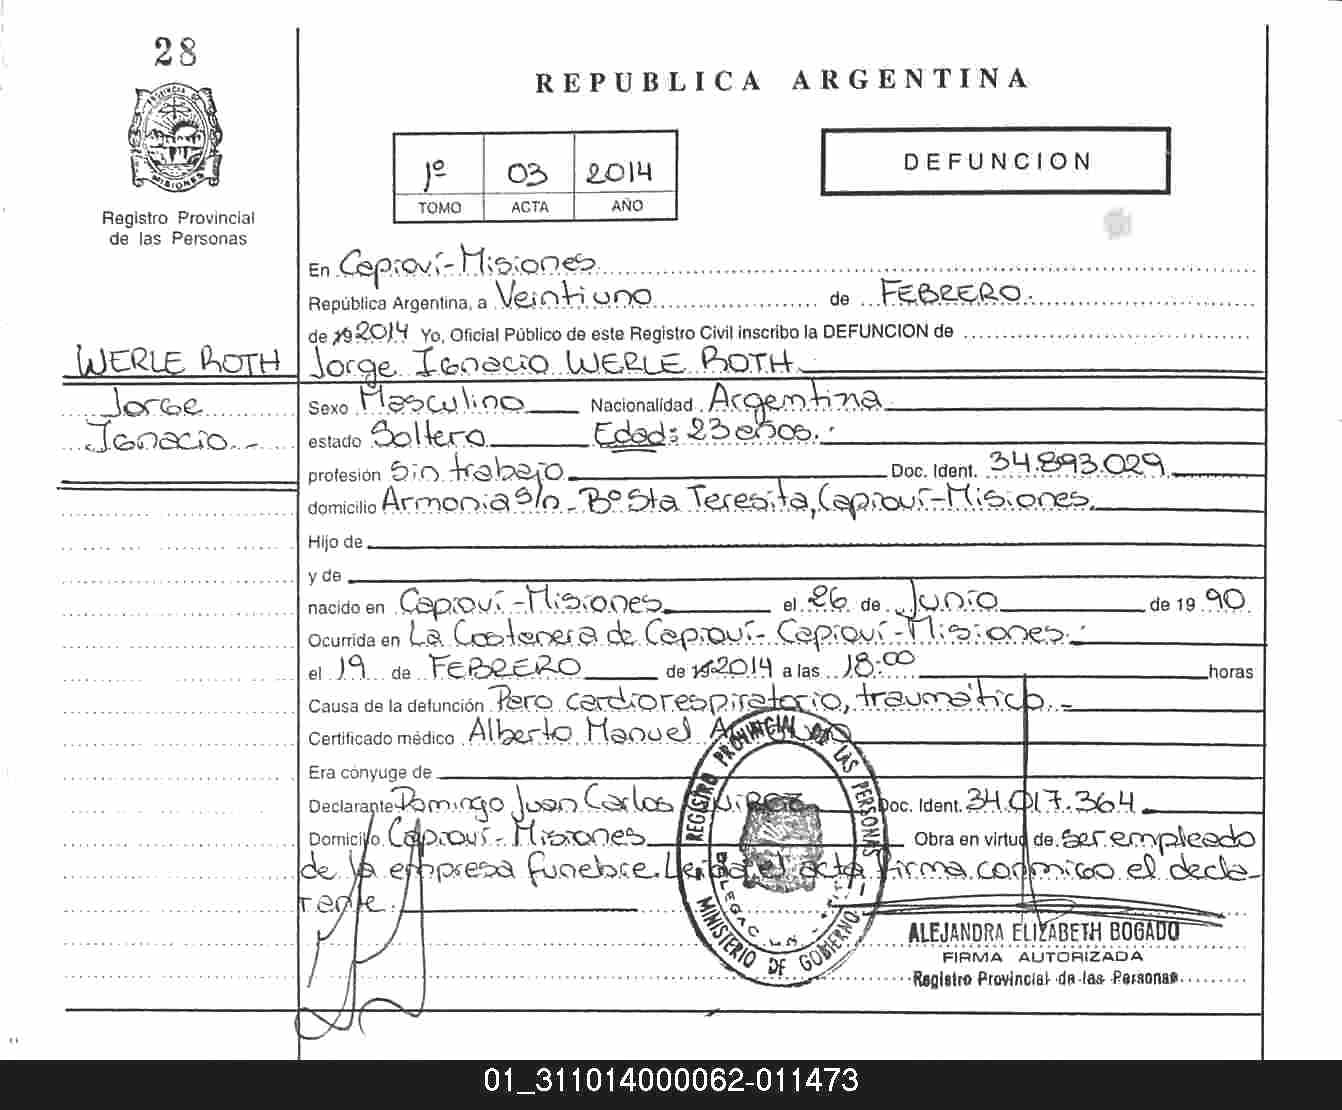 28
PROVINCIA DE
MISIONES
Registro Provincial
de las Personas
REPUBLICA ARGENTINA
1º 03 2014
TOMO ACTA AÑO
DEFUNCION
En Capioví-Misiones
República Argentina, a Veintiuno de FEBRERO.
de 192014 Yo, Oficial Público de este Registro Civil inscribo la DEFUNCION de
WERLE ROTH
Jorge
Ignacio.-
Jorge Ignacio WERLE ROTH
Sexo Masculino Nacionalidad Argentina
estado Soltero Edad: 23 años.-
profesión Sin trabajo Doc. Ident. 34.893.029
domicilio Armonia s/n - Bº Sta Teresita, Capioví-Misiones.
Hijo de
y de
nacido en Capioví-Misiones el 26 de Junio de 19 90
Ocurrida en La Costanera de Capioví- Capioví-Misiones.-
el 19 de FEBRERO de 192014 a las 18:00 horas
Causa de la defunción Paro cardiorespiratorio, traumático.-
Certificado médico Alberto Manuel
Era cónyuge de
Declarante Domingo Juan Carlos Doc. Ident. 34.017.364
Domicilio Capioví-Misiones Obra en virtud de ser empleado
de la empresa funebre. Leída el acta firma conmigo el decla-
rante.
REGISTRO PROVINCIAL DE LAS PERSONAS
MINISTERIO DE GOBIERNO
ALEJANDRA ELIZABETH BOGADO
FIRMA AUTORIZADA
Registro Provincial de las Personas
01_311014000062-011473